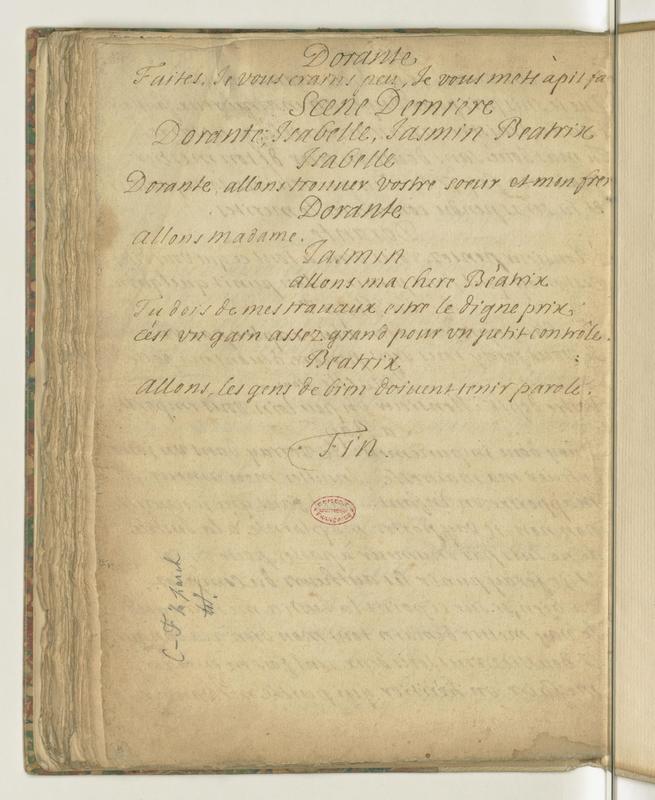 Dorante
Faites, Je vous crains peu, Je vous mets à pis fa
Scene Derniere
Dorante, Isabelle, Jasmin Beatrix
Isabelle
Dorante, allons trouuer vostre soeur et mon frer
Dorante
allons madame.
Jasmin
allons ma chere Béatrix
Tu dois de mes trauaux estre le digne prix,
c'est vn gain assez grand pour vn petit contrôle.
Beatrix
allons, les gens de bien doiuent tenir parole.
Fin